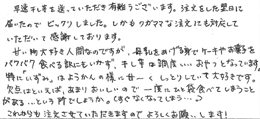 早速干し芋を送っていただき有難うございます。注文をした翌日に
届いたので ビックリしました。しかもワガママな注文にも対応して
いただいて感謝しております。
甘い物大好き人間なのですが、母乳をあげる身で ケーキやお菓子を
パクパク食べる訳にもいかず、干し芋は調度いい おやつとなっています。
特に「しずみ」はようかんの様に甘～く しっとりしていて大好きです。
欠点はといえば、あまりおいしいので 一度にひと袋食べてしまうこと
が多…という所でしょうか。(すぐなくなってしまう…。)
これからも注文させていただきますのでよろしくお願いします!